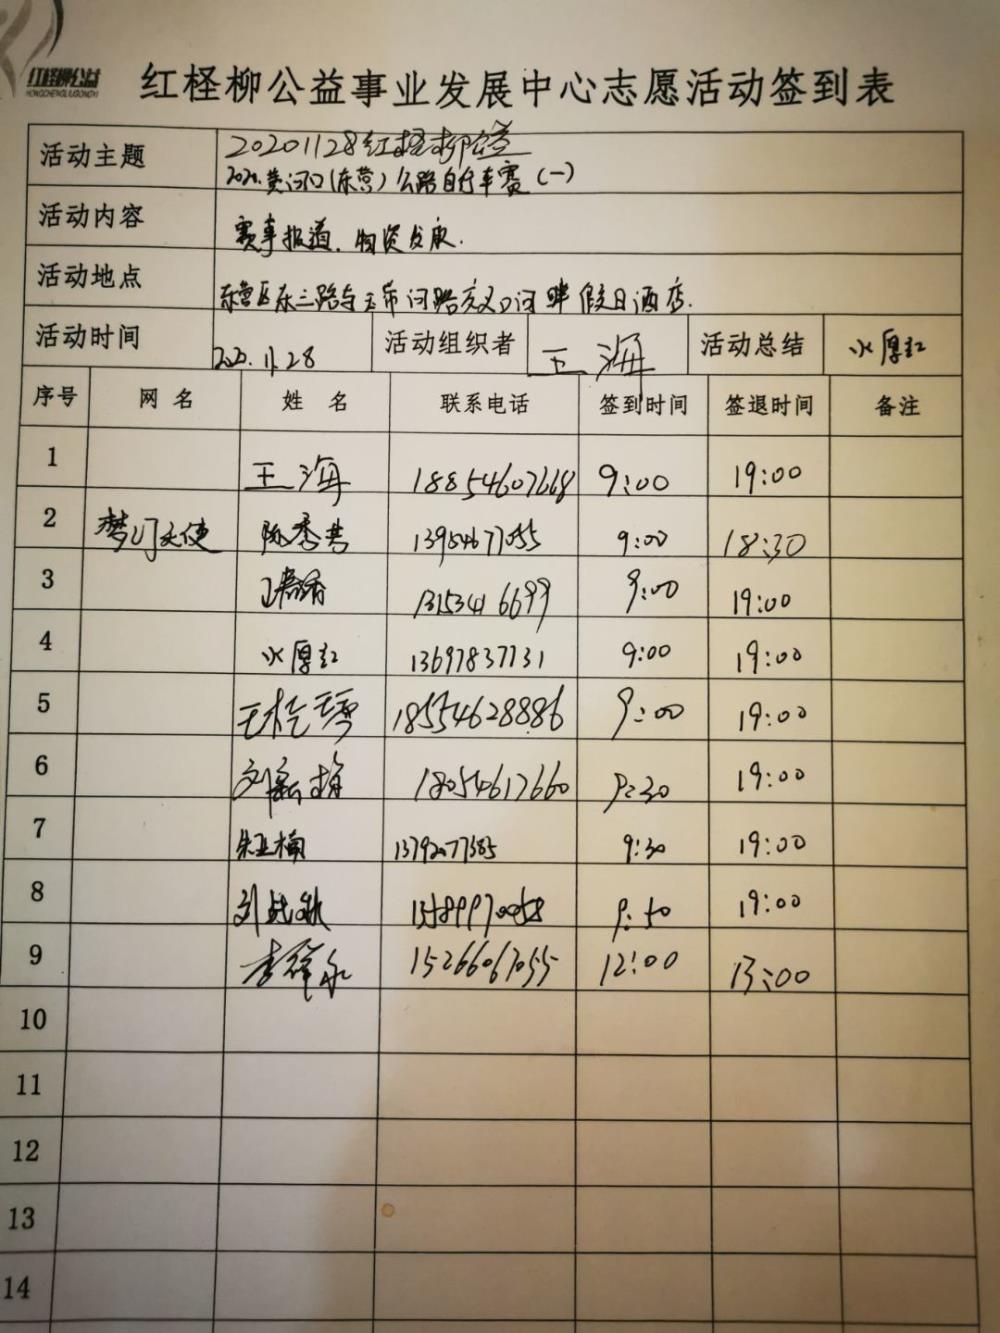 红柽柳公益
HONGCHENGLIUGONGYI
红柽柳公益事业发展中心志愿活动签到表
活动主题 20201128红柽柳公益
2020.黄河口(东营)公路自行车赛(一)
活动内容 赛事报道、物资发放.
活动地点 东营区东三路与玉带河路交叉口河畔假日酒店.
活动时间 2020.11.28 活动组织者 王海 活动总结 水厚红
序号 网名 姓名 联系电话 签到时间 签退时间 备注
1 王海 18854607668 9:00 19:00
2 梦幻天使 陈秀芳 13954677055 9:00 18:30
3 13153416699 9:00 19:00
4 水厚红 13697837131 9:00 19:00
5 18554628886 9:00 19:00
6 刘新梅 18054617660 9:30 19:00
7 朱亚楠 13792077585 9:30 19:00
8 13589970058 9:50 19:00
9 15266067055 12:00 13:00
10
11
12
13
14